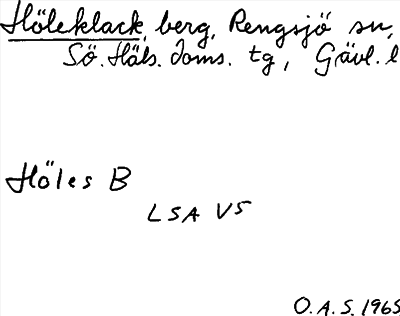 Höleklack, berg, Rengsjö sn,
Sö. Häls. doms. tg, Gävl. l
Höles B
LSA V5
O.A.S. 1965